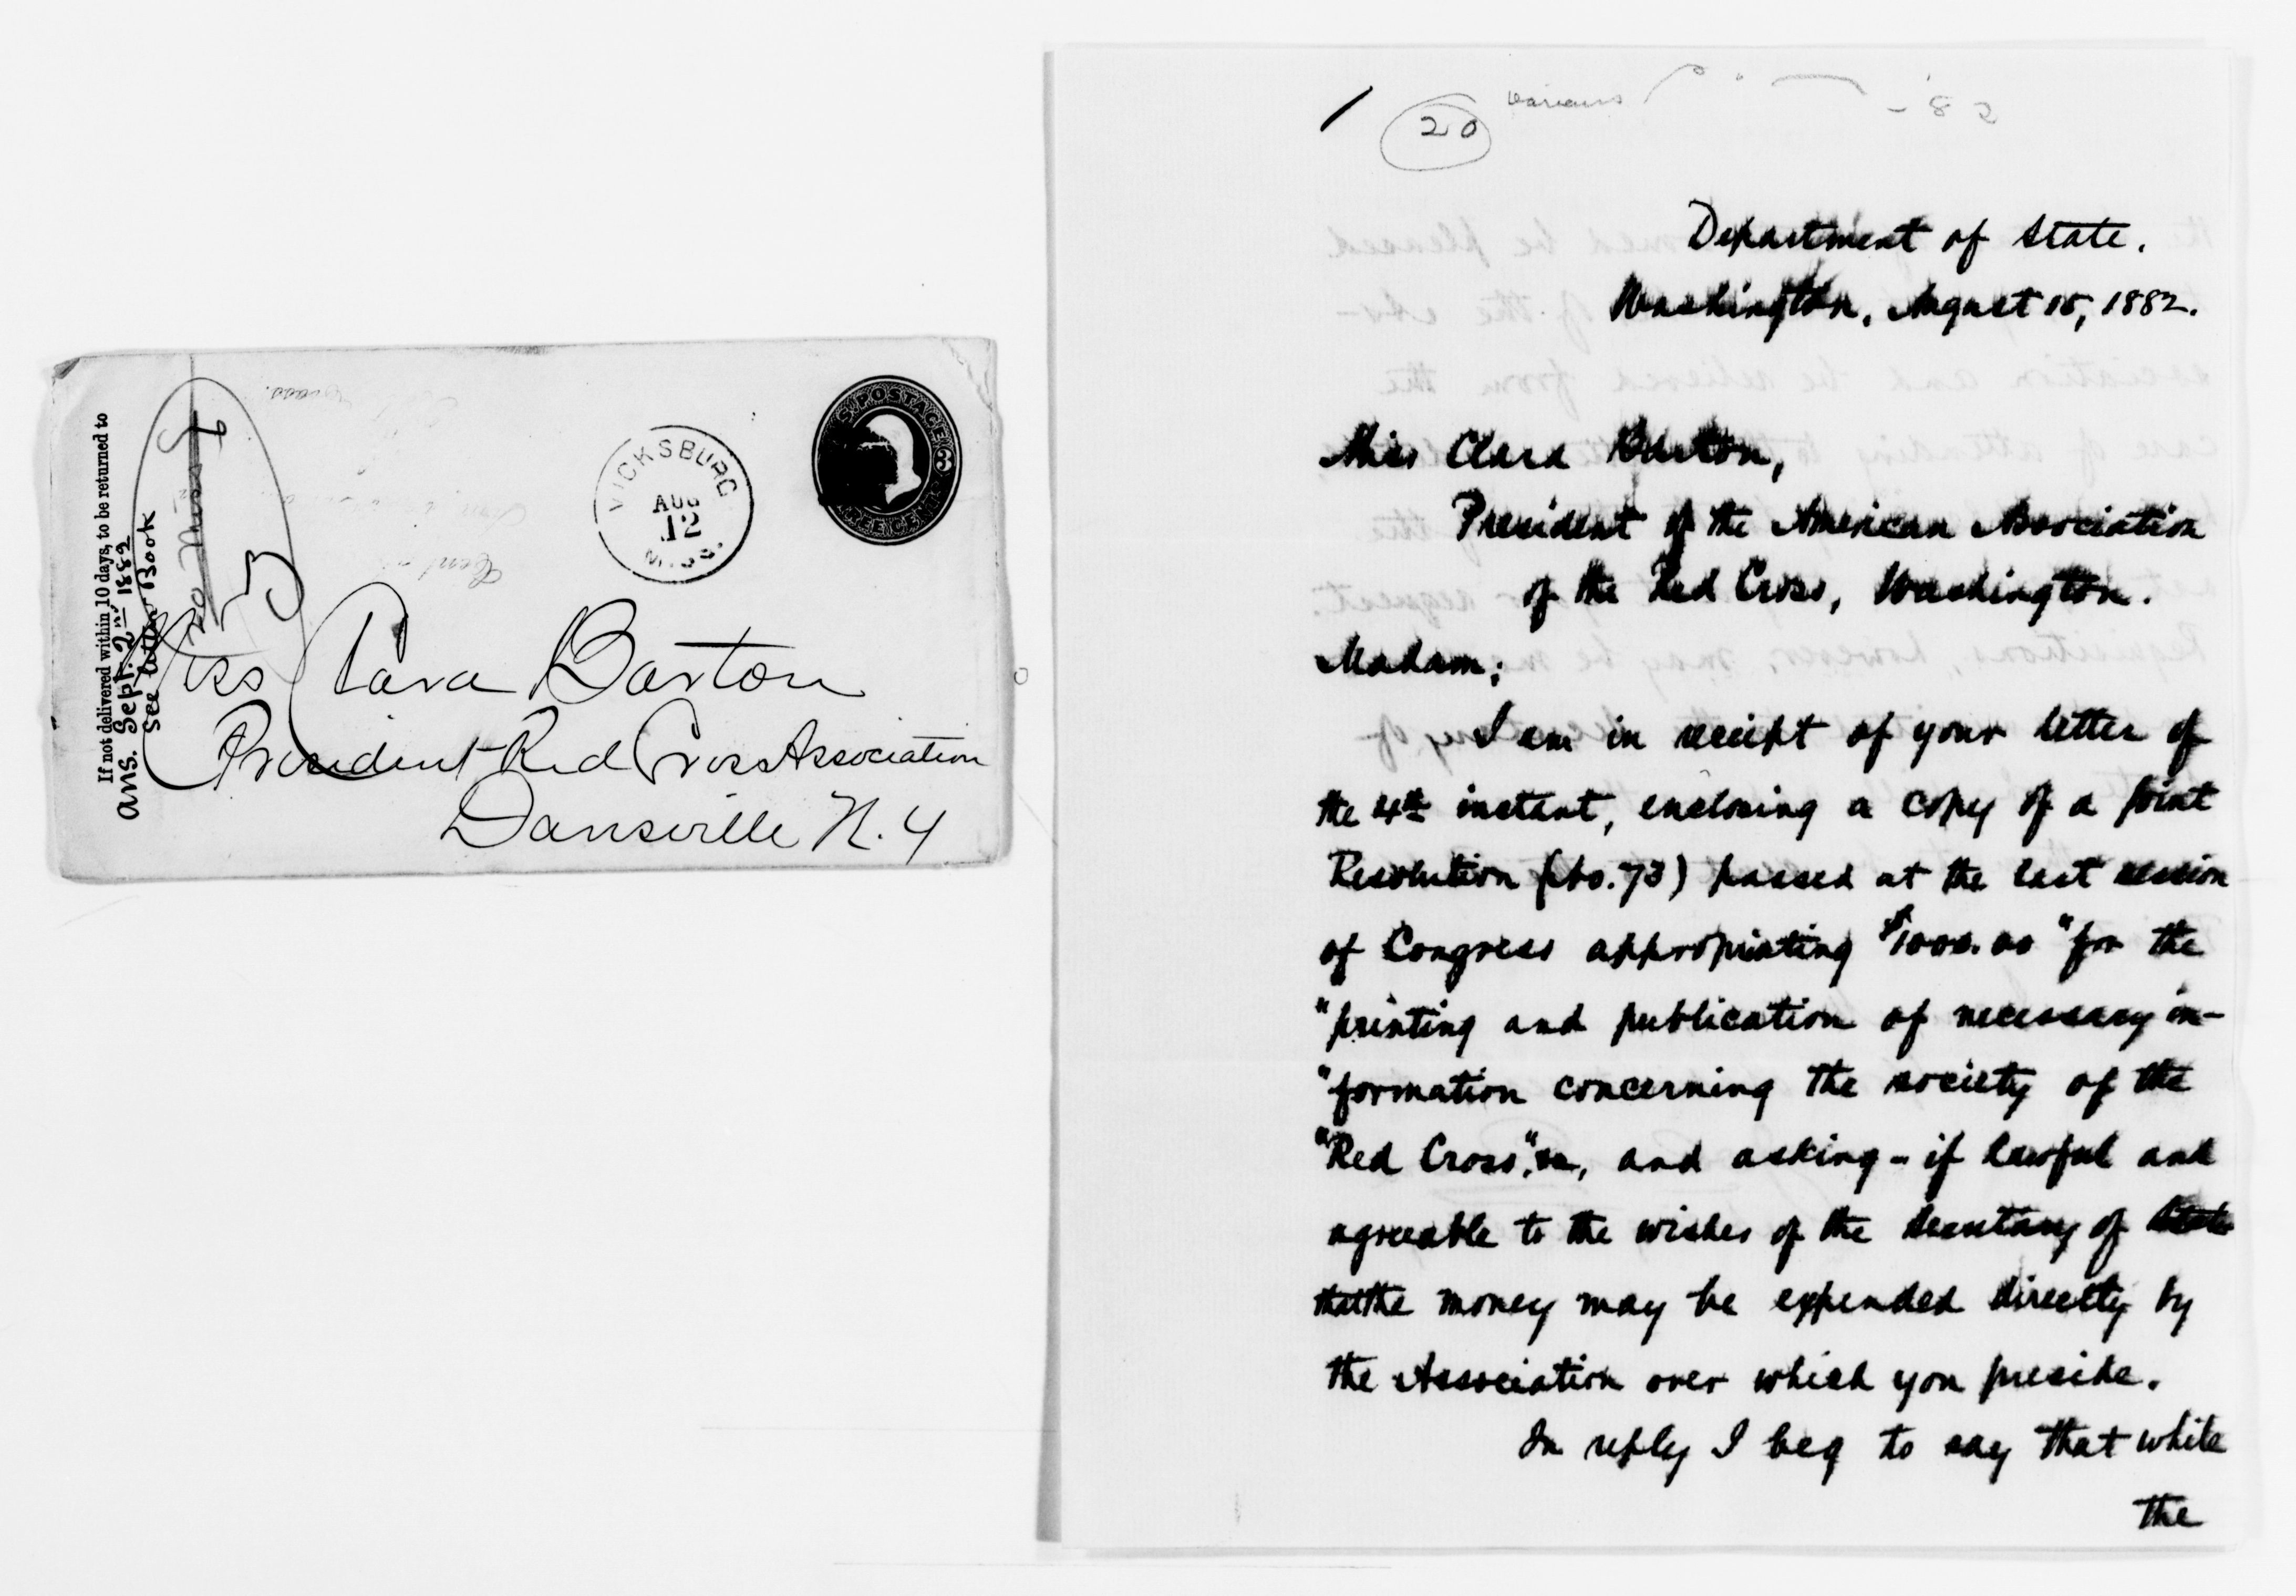 If not delivered within 10 days, to be returned to
ans. Sept. 2nd 1882
see letter Book
VICKSBURG
AUG
12
MISS.
U.S. POSTAGE 3
THREE CENTS
Miss Clara Barton
President Red Cross Association
Dansville N. Y
20
various
- 82
Department of State.
Washington, August 15, 1882.
Miss Clara Barton,
President of the American Association
of the Red Cross, Washington.
Madam;
I am in receipt of your letter of
the 4th instant, enclosing a copy of a Joint
Resolution (No. 73) passed at the last session
of Congress appropriating $1000.00 "for the
"printing and publication of necessary in-
"formation concerning the society of the
"Red Cross", and asking - if lawful and
agreeable to the wishes of the Secretary of State
that the money may be expended directly by
the Association over which you preside.
In reply I beg to say that while
the